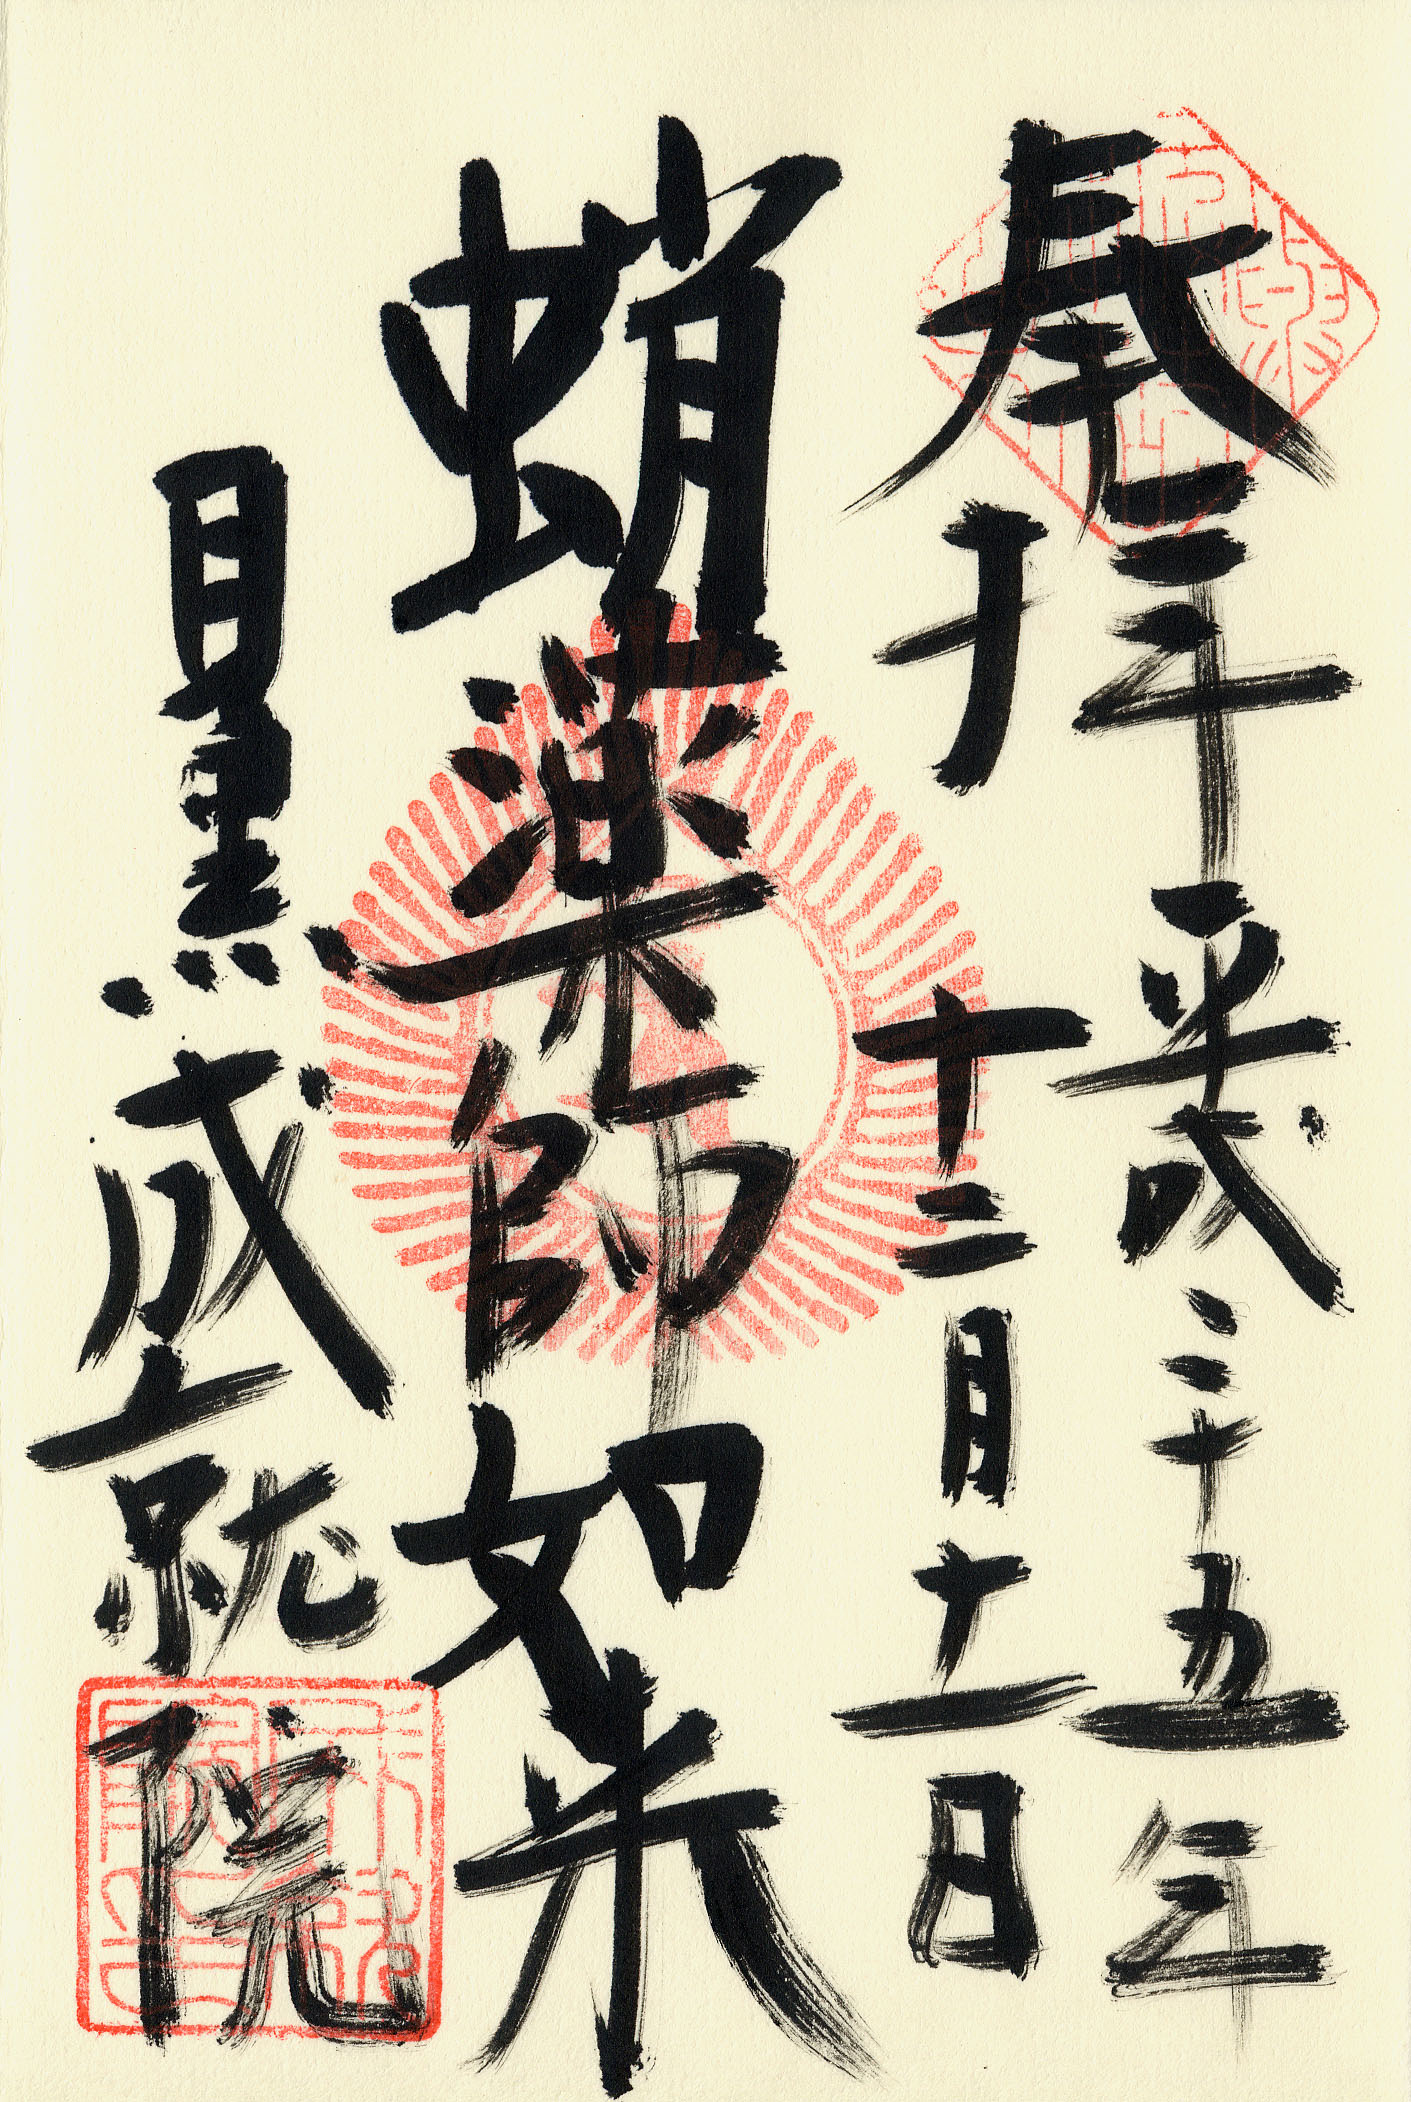 奉拝 平成二十五年
十二月十一日
蛸薬師如来
目黒成就院